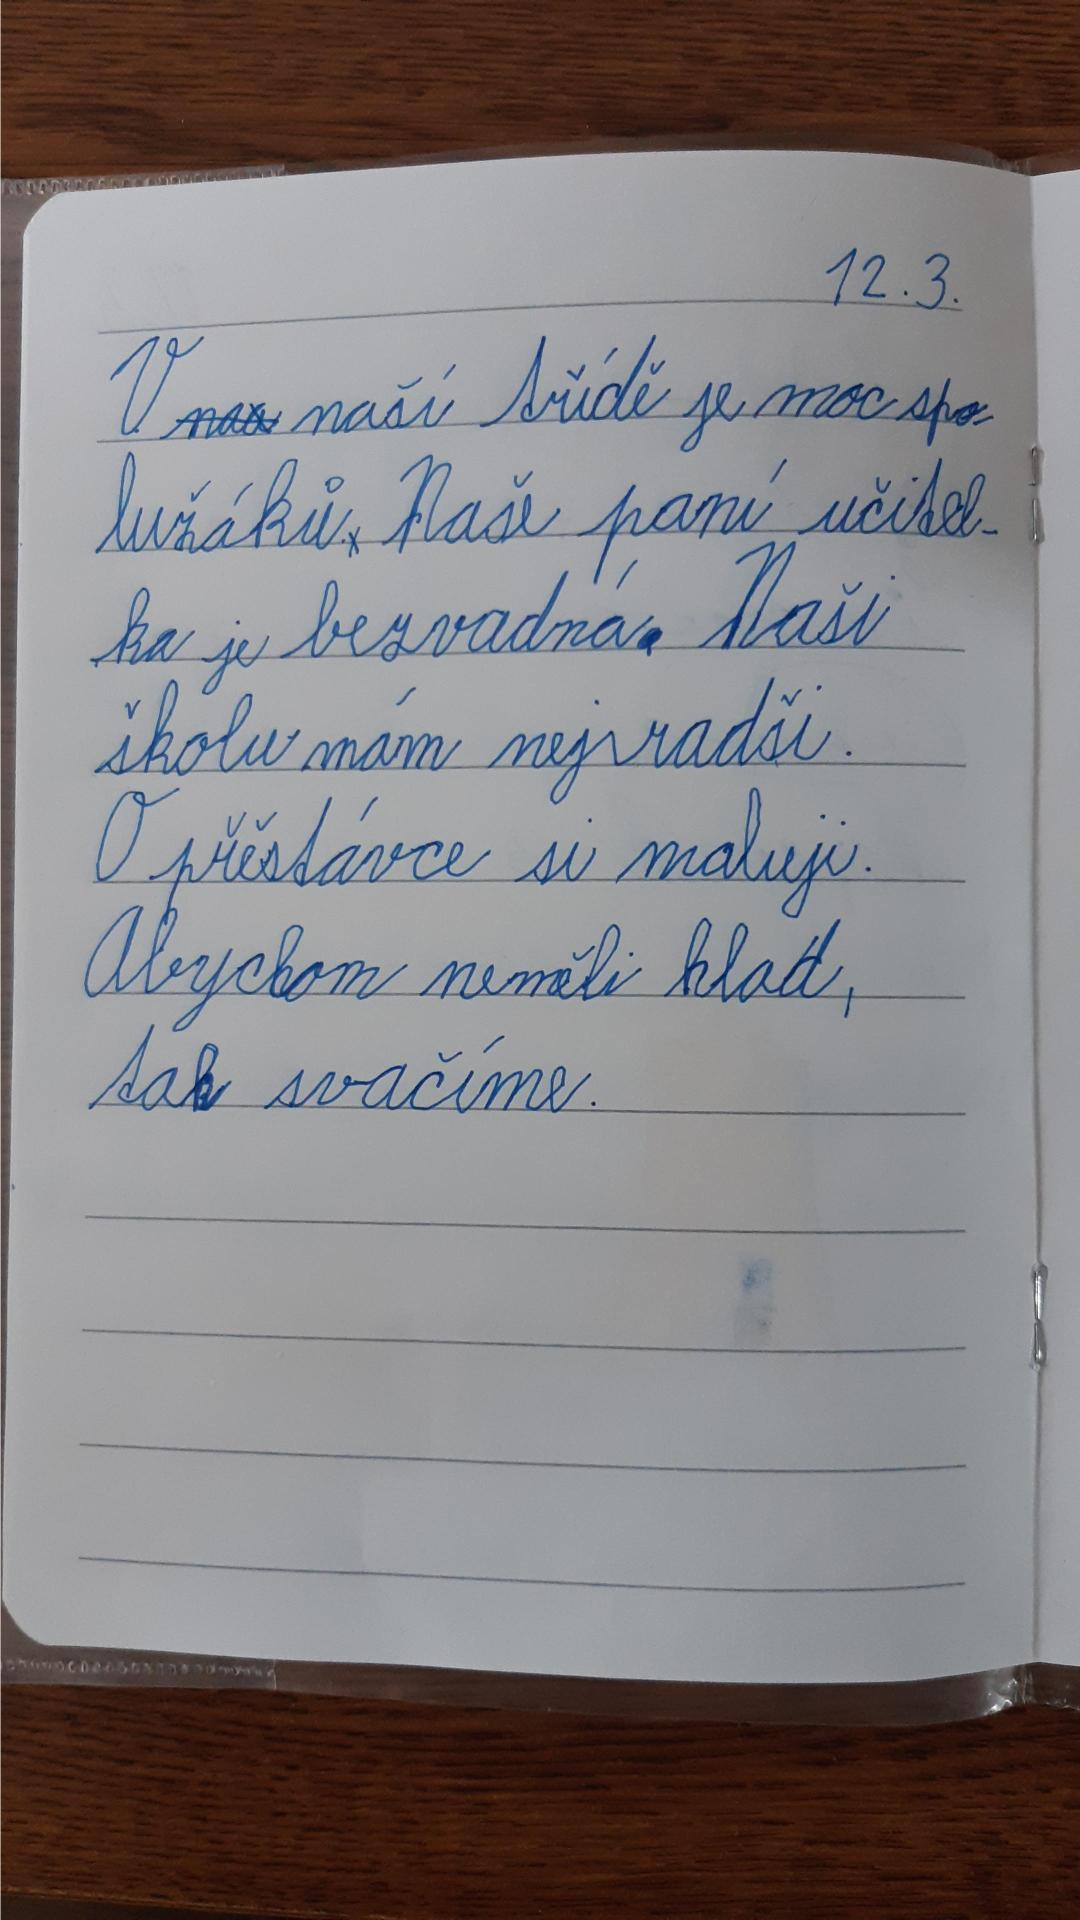 12.3.
V naší třídě je moc spo-
lužáků. Naše paní učitel-
ka je bezvadná. Naši
školu mám nejradši.
O přěstávce si maluji.
Abychom neměli hlad,
tak svačíme.